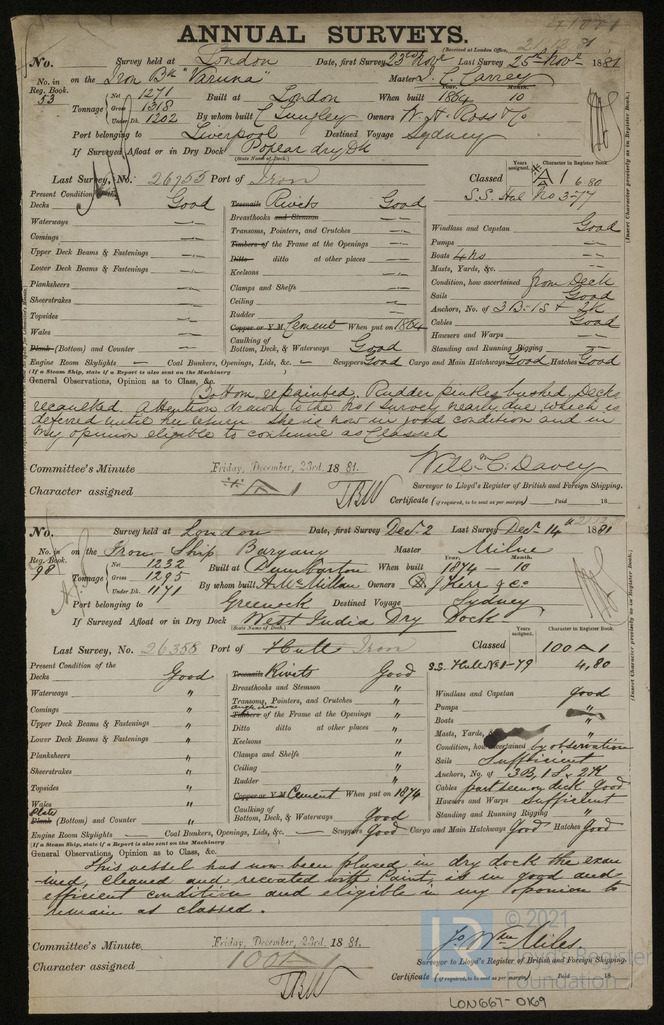 ANNUAL SURVEYS.
(Received at London Office,
No. Survey held at London Date, first Survey 23rd Novr Last Survey 25th Novr 1881
No. in Reg. Book. 53 on the Iron Bk "Varuna" Master
Tonnage Net 1271 Gross 1318 Under Dk. 1202 Built at London When built Year. 1864 Month. 10
By whom built C Lungley Owners W. H. Ross & Co
Port belonging to Liverpool Destined Voyage Sydney
If Surveyed Afloat or in Dry Dock Poplar dry Dk
(State Name of Dock.)
Last Survey, No. 26955 Port of Iron Classed Years assigned. Character in Register Book. A1 6.80
S.S. Hul No 3-77
Present Condition of the
Decks Good Treenails Rivets Good
Waterways Breasthooks and Stemson Windlass and Capstan Good
Comings Transoms, Pointers, and Crutches Pumps
Upper Deck Beams & Fastenings Timbers of the Frame at the Openings Boats 4 No
Lower Deck Beams & Fastenings Ditto ditto at other places Masts, Yards, &c.
Planksheers Keelsons Condition, how ascertained from Deck
Sheerstrakes Clamps and Shelfs Sails Good
Topsides Ceiling Anchors, No. of 3 B. 1 S & 2K
Wales Rudder Cables Good
Plank (Bottom) and Counter Copper or Y M Cement When put on 1864 Hawsers and Warps
Caulking of Bottom, Deck, & Waterways Good Standing and Running Rigging
Engine Room Skylights Coal Bunkers, Openings, Lids, &c. Scuppers Good Cargo and Main Hatchways Good Hatches Good
(If a Steam Ship, state if a Report is also sent on the Machinery
General Observations, Opinion as to Class, &c.
Bottom repainted. Rudder pintles bushed, Decks
recaulked. Attention drawn to the No 1 Survey nearly due, which is
defered until her return She is now in good condition and in
my opinion eligible to continue as Classed
Committee's Minute Friday, December, 23rd. 1881. Willm C. Davey
Character assigned A 1 Surveyor to Lloyd's Register of British and Foreign Shipping.
TBW Certificate (if required, to be sent as per margin) Paid 18
(Insert Character precisely as in Register Book.)
No. Survey held at London Date, first Survey Dec. 2 Last Survey Decr 14th 1881
No. in Reg. Book. 98 on the Iron Ship Bargany Master Milne
Tonnage Net 1232 Gross 1295 Under Dk. 1171 Built at Dumbarton When built Year. 1874 Month. 10
By whom built A. McMillan Owners J Kerr & Co
Port belonging to Greenock Destined Voyage Sydney
If Surveyed Afloat or in Dry Dock West India Dry Dock
(State Name of Dock.)
Last Survey, No. 26358 Port of Hull Iron Classed Years assigned. Character in Register Book. 100A1
S.S. Hull No 1-79 4,80
Present Condition of the
Decks Good Treenails Rivets Good
Waterways " Breasthooks and Stemson " Windlass and Capstan Good
Comings " Transoms, Pointers, and Crutches " Pumps "
Upper Deck Beams & Fastenings " Timbers angle iron of the Frame at the Openings " Boats "
Lower Deck Beams & Fastenings " Ditto ditto at other places " Masts, Yards, "
Planksheers " Keelsons " Condition, how ascertained by observation
Sheerstrakes " Clamps and Shelfs " Sails Sufficient
Topsides " Ceiling " Anchors, No. of 3B, 1S & 2K
Wales " Rudder " Cables part seen on deck Good
Plate Plank (Bottom) and Counter " Copper or Y M Cement When put on 1874 Hawsers and Warps Sufficient
Caulking of Bottom, Deck, & Waterways Good Standing and Running Rigging "
Engine Room Skylights Coal Bunkers, Openings, Lids, &c. Scuppers Good Cargo and Main Hatchways Good Hatches Good
(If a Steam Ship, state if a Report is also sent on the Machinery
General Observations, Opinion as to Class, &c.
This vessel has now been placed in dry dock the exam
-ined, cleaned and recoated with Paint, is in good and
efficient condition and eligible in my oponion to
remain as classed.
Committee's Minute. Friday, December, 23rd. 1881. Jo Wm Miles.
Character assigned 100A1 Surveyor to Lloyd's Register of British and Foreign Shipping.
TBW Certificate (if required, to be sent as per margin) Paid 18
(Insert Character precisely as in Register Book.)
LR © 2021
Lloyd's Register
Foundation
LON667-0169